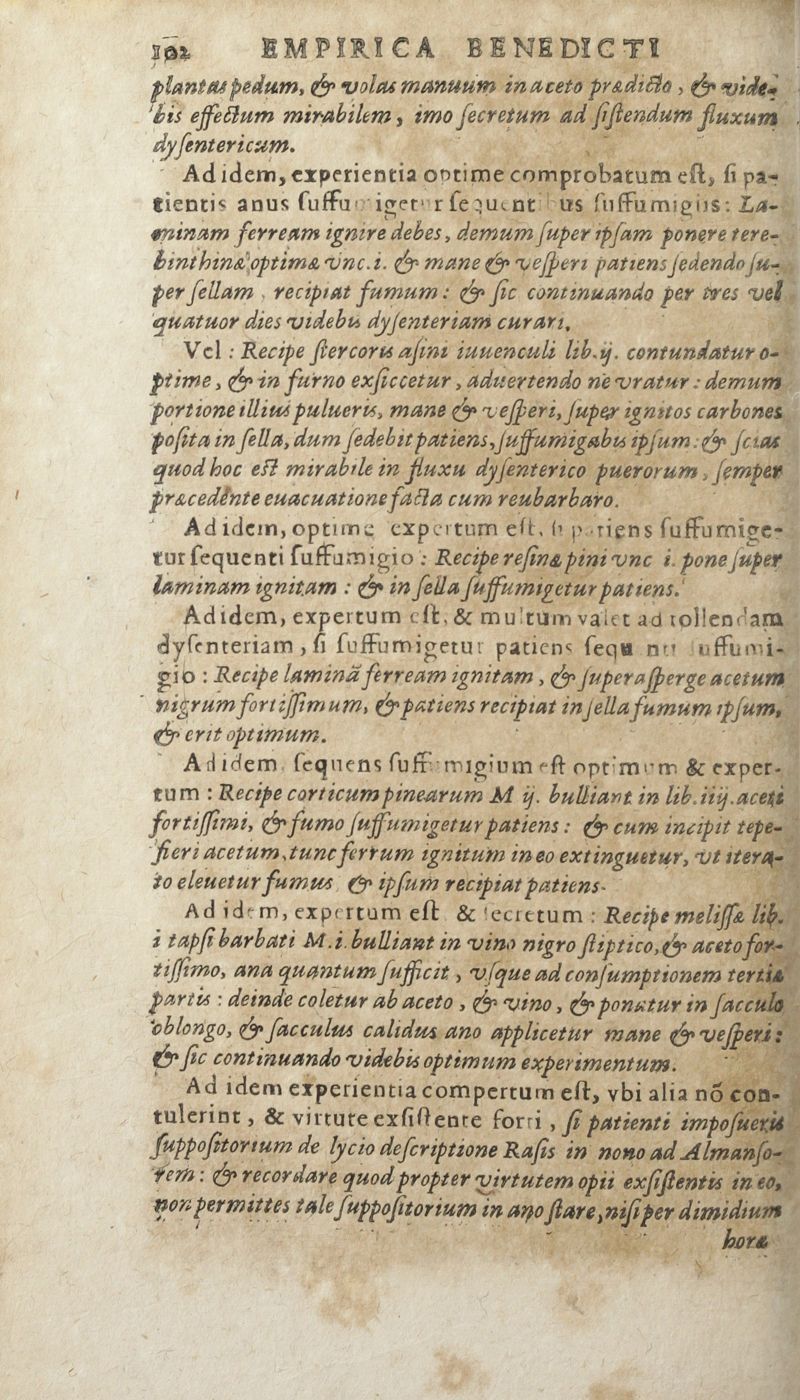 102 EMPIRICA BENEDICTI
plantas pedum, & volas manuum in aceto prædicto, & vide-
bis effectum mirabilem, imo secretum ad sistendum fluxum
dysentericum.
Ad idem, experientia optime comprobatum est, si pa-
tientis anus suffumigetur sequentibus suffumigiis: La-
minam ferream ignire debes, demum super ipsam ponere tere-
binthinæ optimæ vnc. i. & mane & vesperi patiens sedendo su-
per sellam, recipiat fumum: & sic continuando per tres vel
quatuor dies videbis dysenteriam curari.
Vel: Recipe stercoris asini iuuenculi lib. ij. contundatur o-
ptime, & in furno exsiccetur, aduertendo ne vratur: demum
portione illius pulueris, mane & vesperi, super ignitos carbones
posita in sella, dum sedebit patiens, suffumigabis ipsum: & scias
quod hoc est mirabile in fluxu dysenterico puerorum, semper
præcedente euacuatione facta cum reubarbaro.
Ad idem, optime expertum est, si patiens suffumige-
tur sequenti suffumigio: Recipe resinæ pini vnc i. pone super
laminam ignitam: & in sella suffumigetur patiens.
Ad idem, expertum est, & multum valet ad tollendam
dysenteriam, si suffumigetur patiens sequenti suffumi-
gio: Recipe laminā ferream ignitam, & superasperge acetum
nigrum fortissimum, & patiens recipiat in sella fumum ipsum,
& erit optimum.
Ad idem sequens suffumigium est optimum & exper-
tum: Recipe corticum pinearum M ij. bulliant in lib. iiij. aceti
fortissimi, & fumo suffumigetur patiens: & cum incipit tepe-
fieri acetum, tunc ferrum ignitum in eo extinguetur, vt itera-
to eleuetur fumus & ipsum recipiat patiens.
Ad idem, expertum est & secretum: Recipe melissæ lib.
i tapsi barbati M. i. bulliant in vino nigro stiptico, & aceto for-
tissimo, ana quantum sufficit, vsque ad consumptionem tertiæ
partis: deinde coletur ab aceto, & vino, & ponatur in sacculo
oblongo, & sacculus calidus ano applicetur mane & vesperi:
& sic continuando videbis optimum experimentum.
Ad idem experientia compertum est, vbi alia nō con-
tulerint, & virtute exsistente forti, si patienti imposueris
suppositorium de lycio descriptione Rasis in nono ad Almanso-
rem: & recordare quod propter virtutem opii exsistentis in eo,
non permittes tale suppositorium in ano stare, nisi per dimidium
horæ